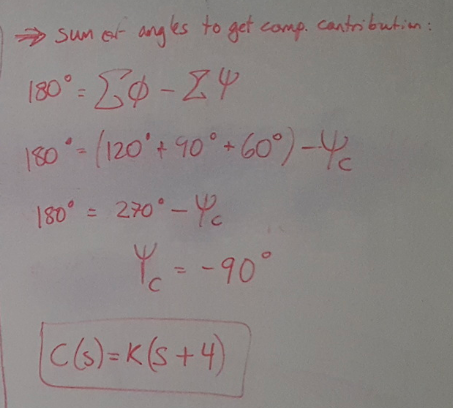 ⇒ sum of angles to get comp. contribution:
180° = Σφ - Σψ
180° = (120° + 90° + 60°) - ψc
180° = 270° - ψc
ψc = -90°
C(s) = K(s + 4)